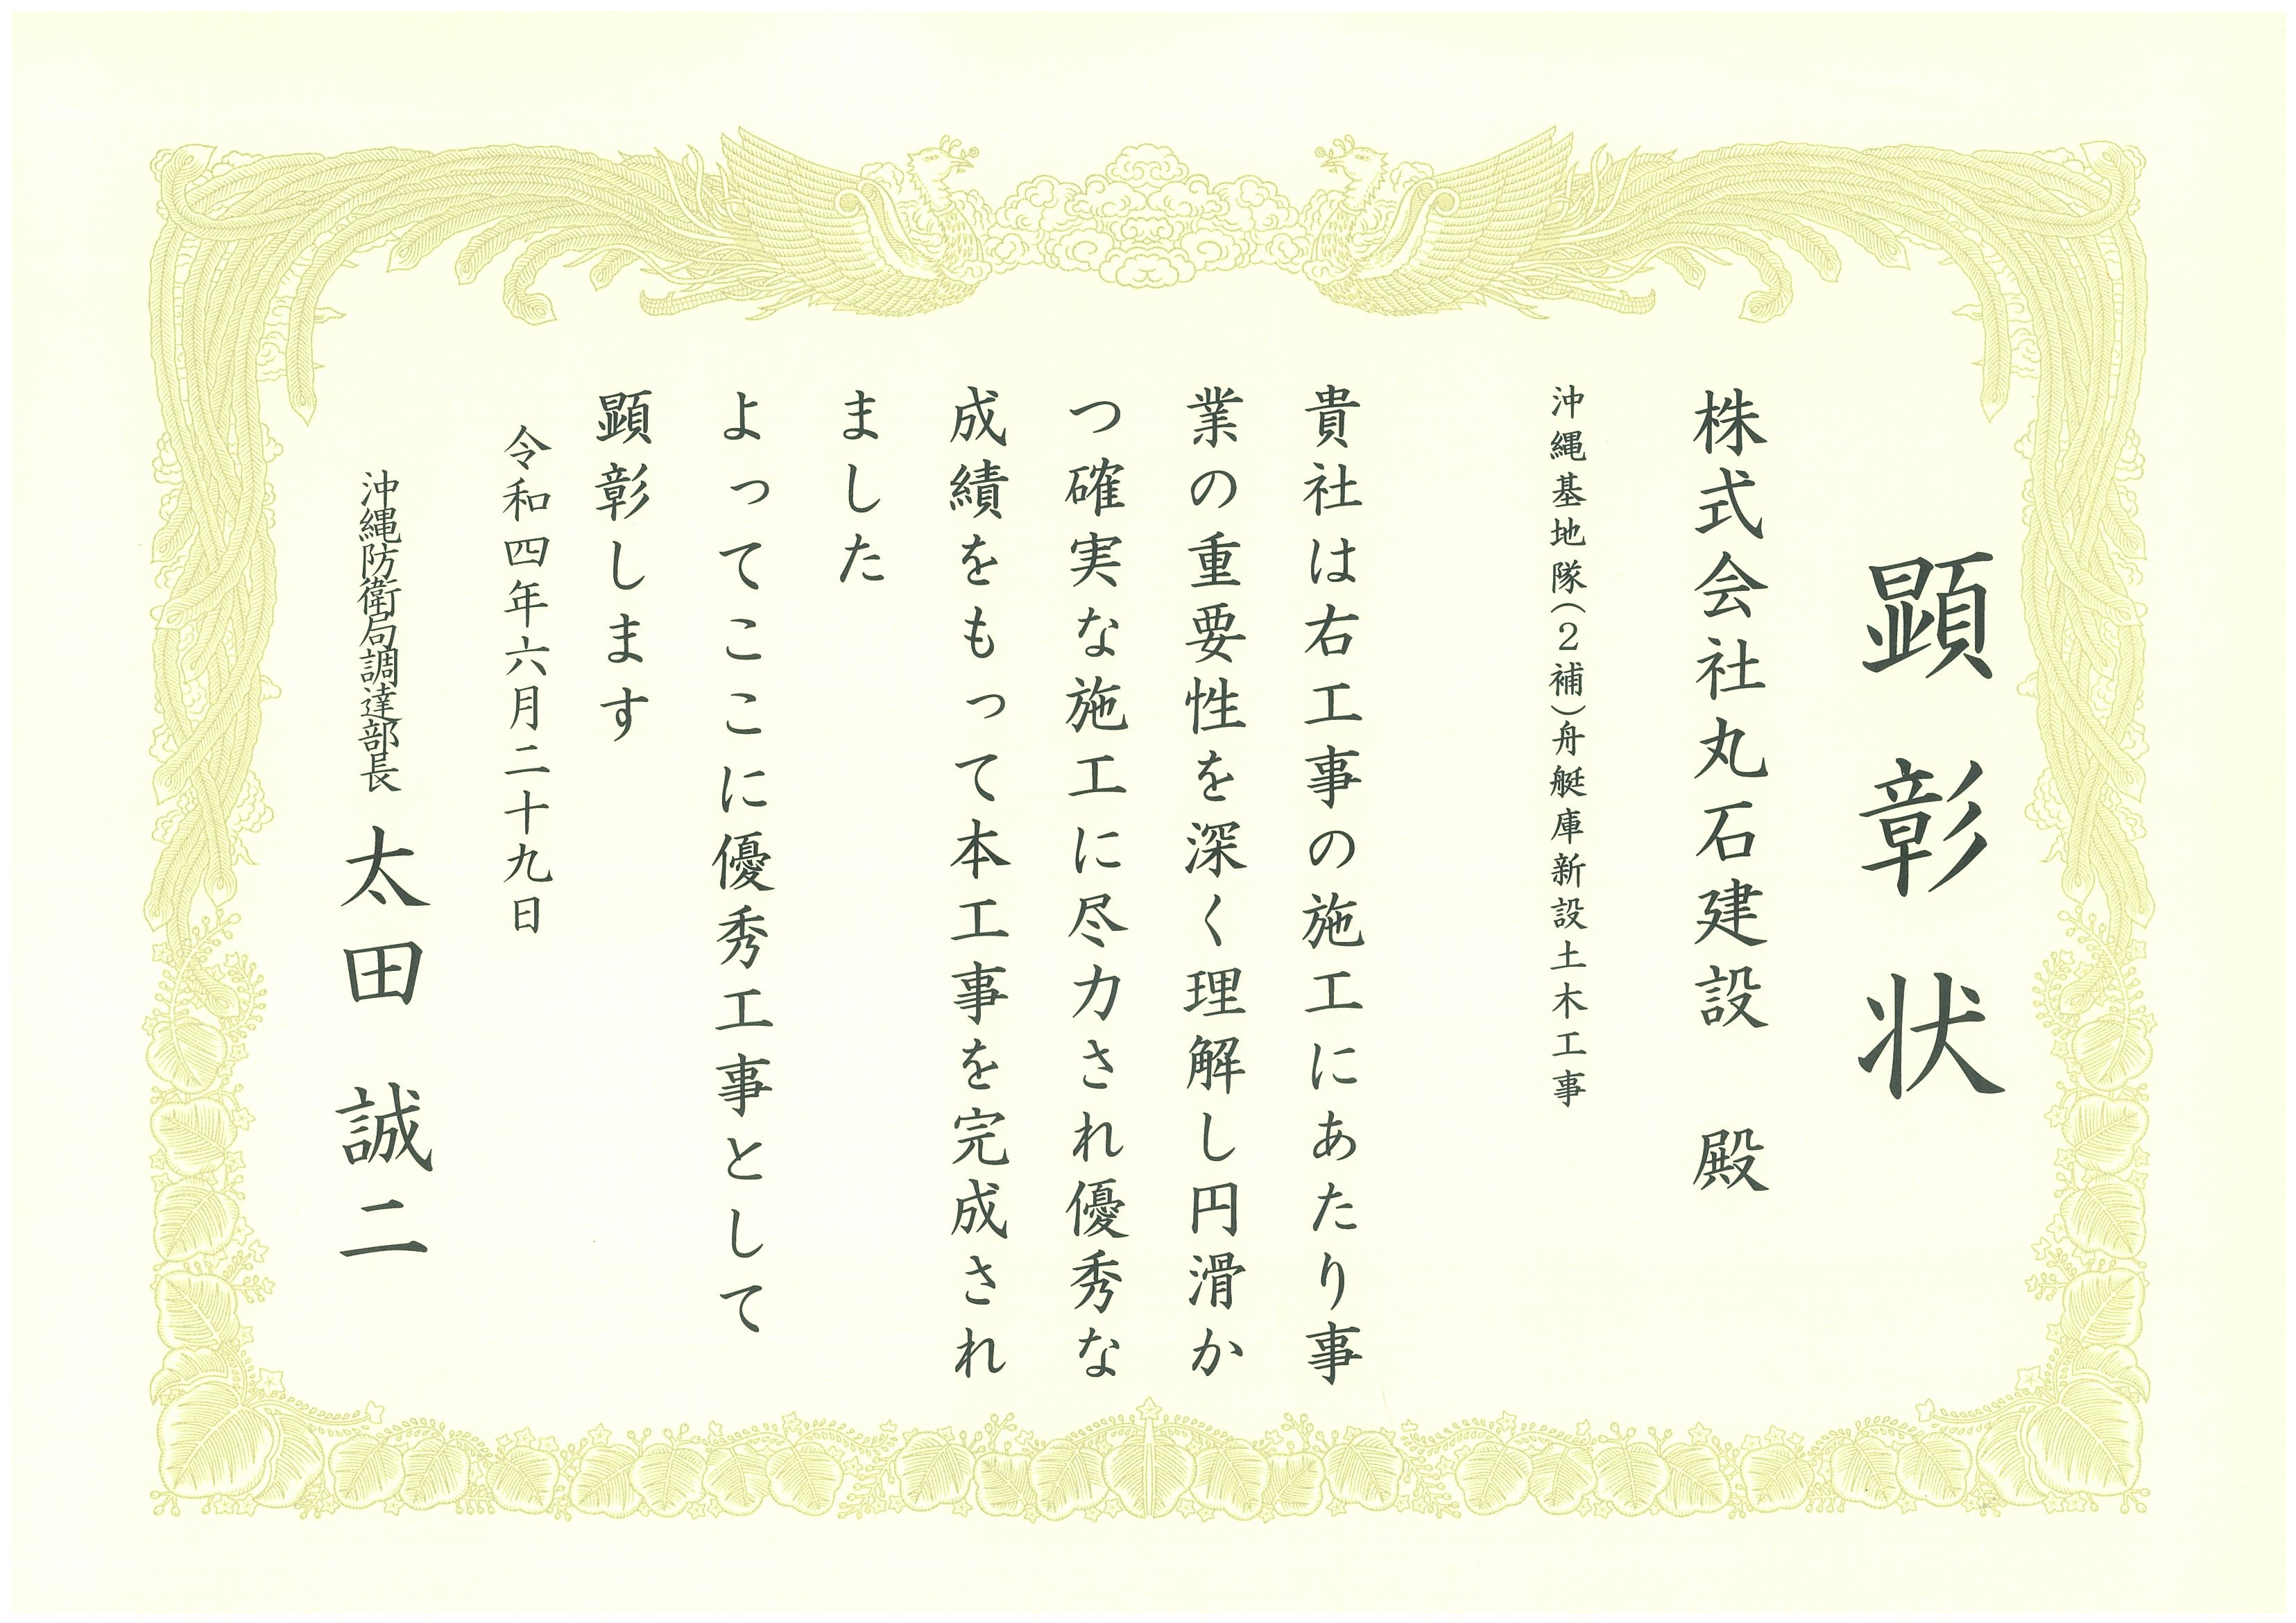 顕彰状
株式会社丸石建設 殿
沖縄基地隊(2補)舟艇庫新設土木工事
貴社は右工事の施工にあたり事
業の重要性を深く理解し円滑か
つ確実な施工に尽力され優秀な
成績をもって本工事を完成され
ました
よってここに優秀工事として
顕彰します
令和四年六月二十九日
沖縄防衛局調達部長 太田 誠二